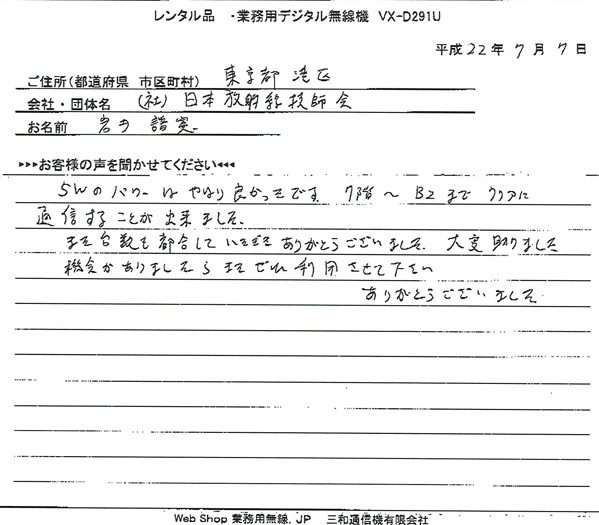 レンタル品 ・業務用デジタル無線機 VX-D291U
平成22年7月7日
ご住所(都道府県 市区町村) 東京都 港区
会社・団体名 (社)日本放射線技師会
お名前
▸▸▸お客様の声を聞かせてください◂◂◂
5Wのパワーはやはり良かったです 7階〜B2までクリアに
通信することが出来ました。
また台数も都合していただきありがとうございました。大変助りました
機会がありましたらまたぜひ利用させて下さい
ありがとうございました。
Web Shop 業務用無線.JP 三和通信機有限会社